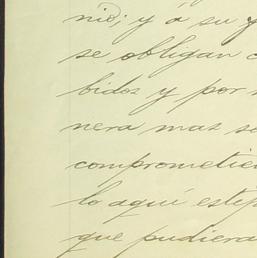 nio; y á su
se obligan
bidos y por
nera mas
comprometien
lo aquí estip
que pudiera